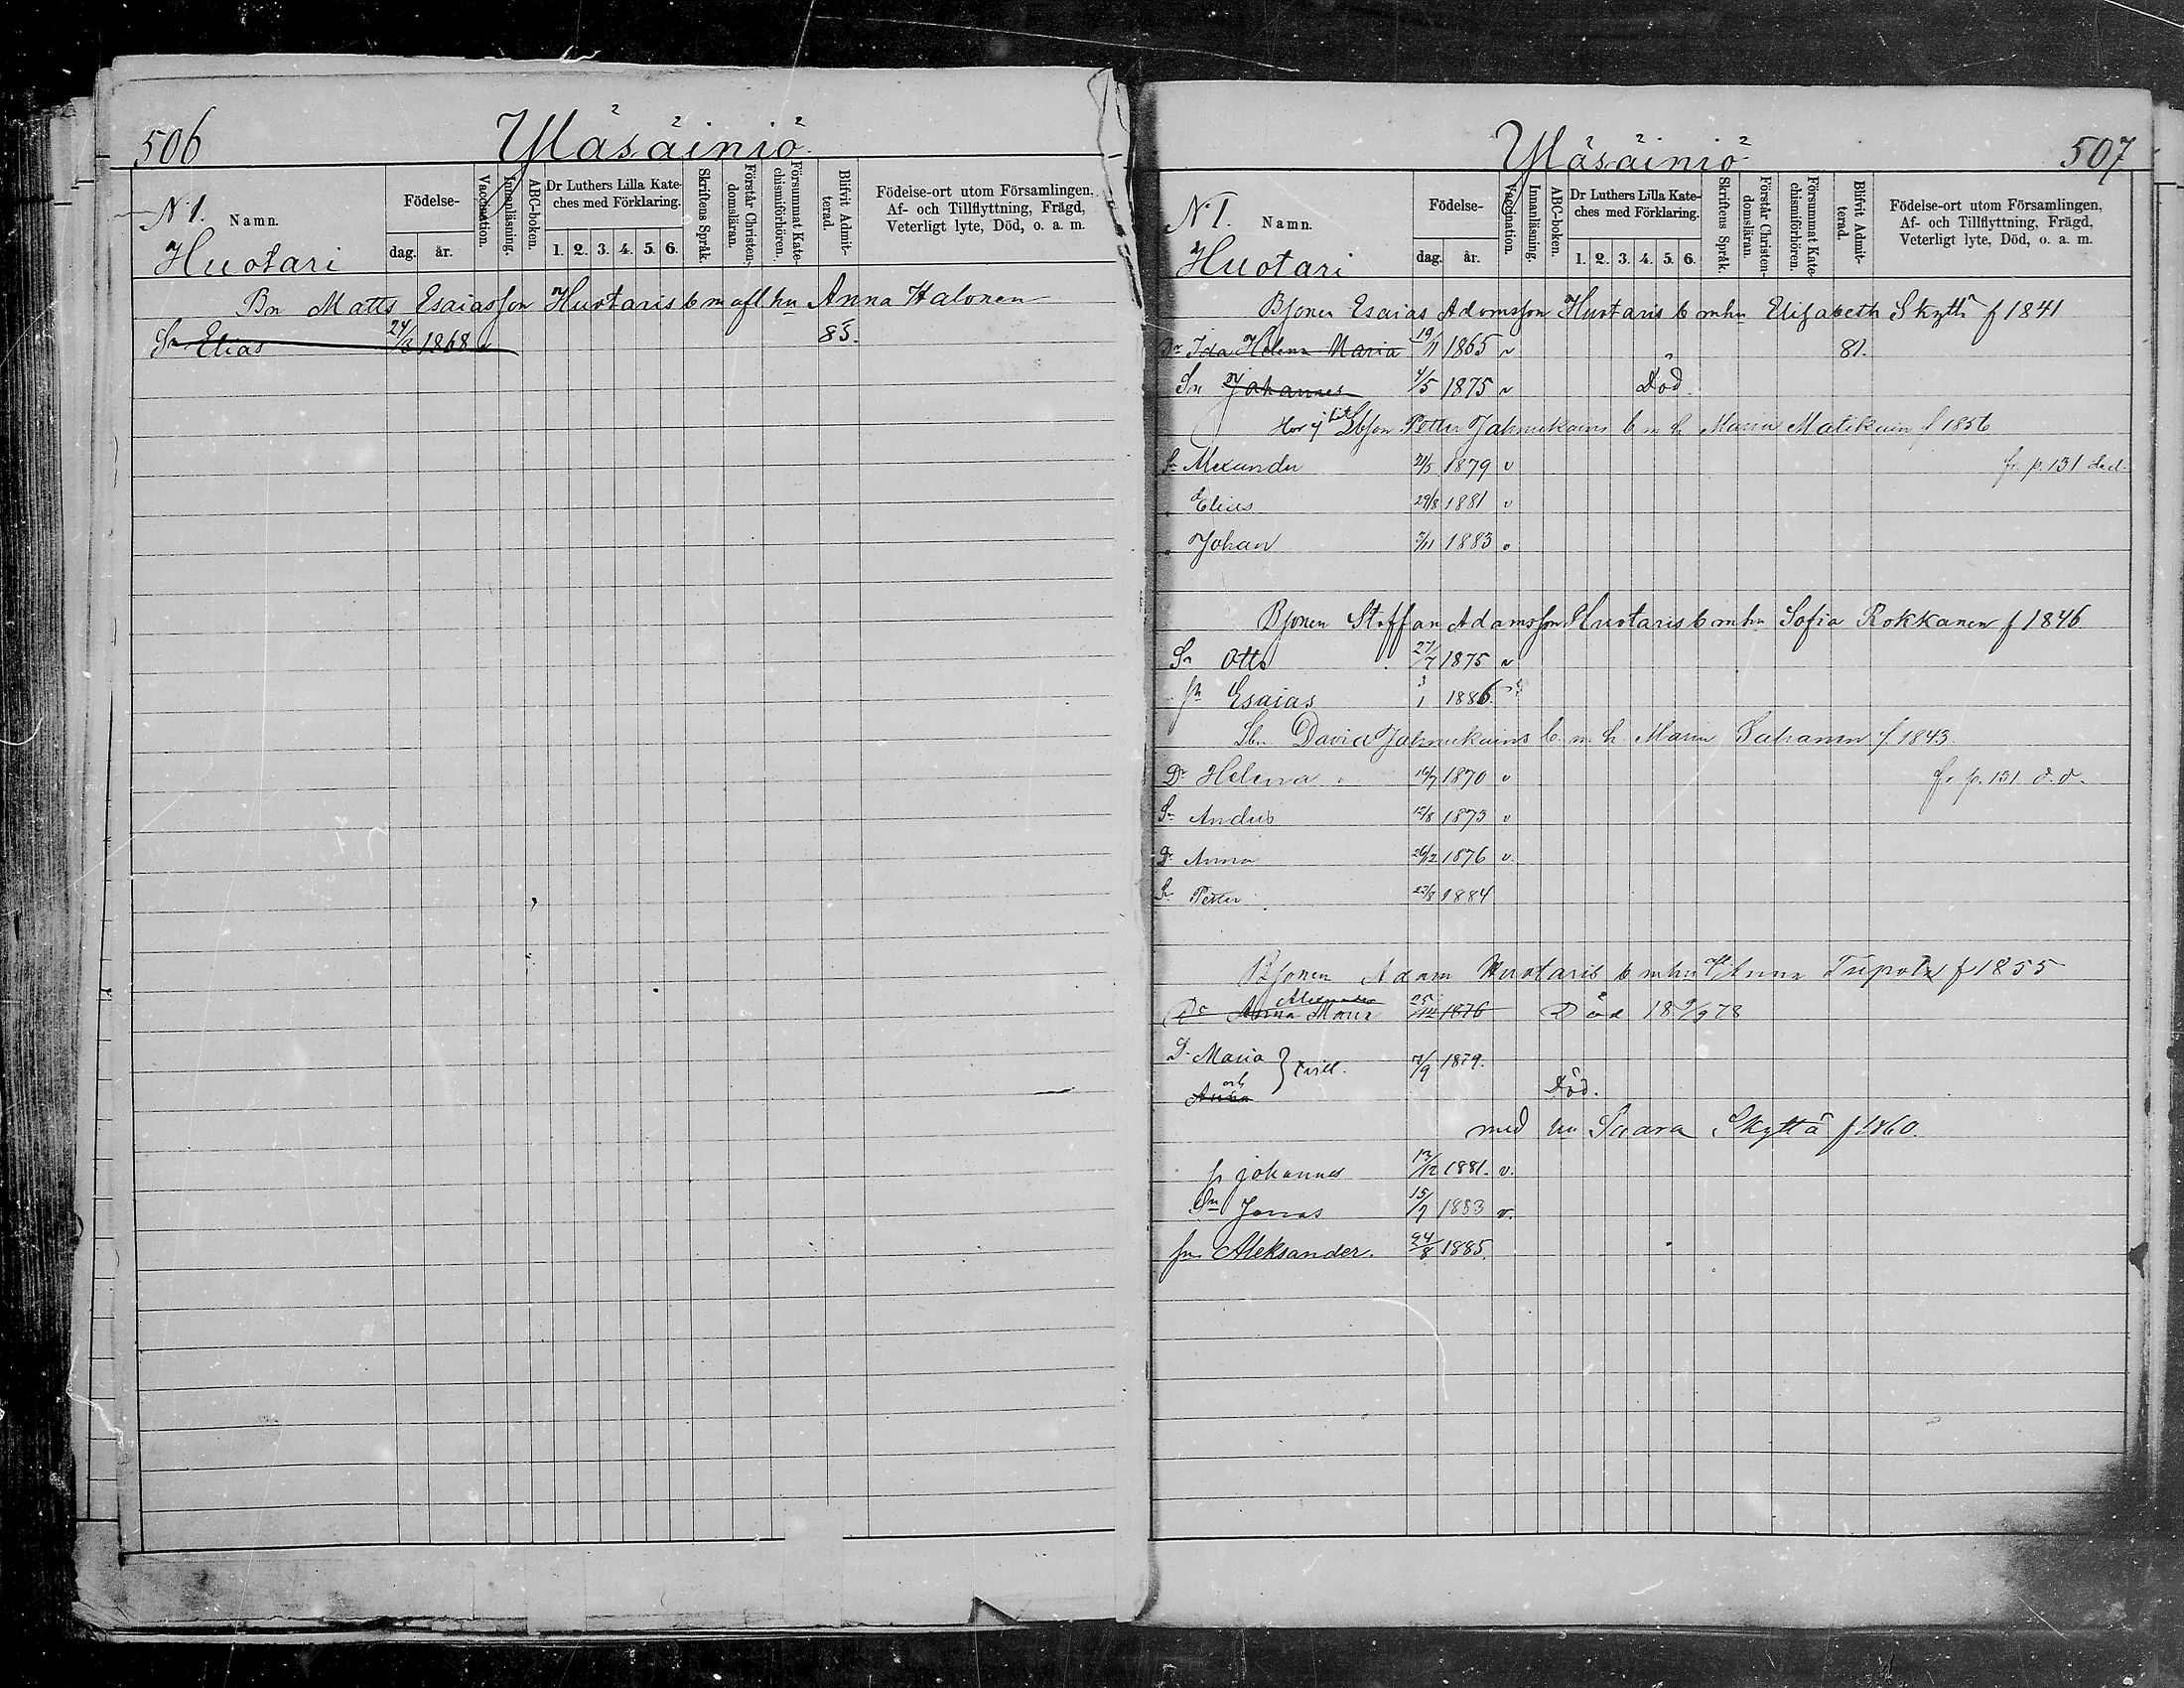 506
Yläsäiniö
N 1.
Namn.
Huotari
Födelse-
dag.
år.
Vaccination.
Innanläsning.
ABC-boken.
Dr Luthers Lilla Kate-
ches med Förklaring.
1. 2. 3. 4. 5. 6.
Skriftens Språk.
Förstår Christen-
domsläran.
Försummat Kate-
chismiförhören.
Blifvit Admit-
terad.
Födelse-ort utom Församlingen,
Af- och Tillflyttning, Frägd,
Veterligt lyte, Död, o. a. m.
Bn Matts Esaiasson Huotaris b m afl hu Anna Halonen
Sn Elias 24/3 1868 v 85.
Yläsäiniö
507
N 1.
Namn.
Huotari
Födelse-
dag.
år.
Vaccination.
Innanläsning.
ABC-boken.
Dr Luthers Lilla Kate-
ches med Förklaring.
1. 2. 3. 4. 5. 6.
Skriftens Språk.
Förstår Christen-
domsläran.
Försummat Kate-
chismiförhören.
Blifvit Admit-
terad.
Födelse-ort utom Församlingen,
Af- och Tillflyttning, Frägd,
Veterligt lyte, Död, o. a. m.
Bsonen Esaias Adamsson Huotaris b m hu Elisabeth Skyttä f 1841
Dr Ida Helena Maria 19/11 1865 v 81.
Sn Johannes 4/5 1875 v Död.
Petter Jahnukains b m h Maria Matikain f 1856
Sn Alexander 21/5 1879 v fr. p. 131 d.d.
" Elias 29/8 1881 v
" Johan 3/11 1883 v
Bsonen Staffan Adamsson Huotaris b m hu Sofia Rokkanen f 1846
Sn Otto 27/7 1875 v
sn Esaias 3/1 1886
Sbn David Jahnukains b. m. h. Maria f. 1843.
Dr Helena 16/7 1870 v fr. p. 131 d.d.
Sn Anders 12/8 1873 v
Dr Anna 26/12 1876 v.
Sn Petter 22/8 1884
Bsonen Adam Huotaris b m hu Anna f 1855
Alexander
Dr Anna Maria 25/12 1876 Död 18 9/9 78
D. Maria } tvill. 7/9 1879.
och
Anna Död.
med hu Saara Skyttä f 1860.
sn Johannes 13/12 1881. v.
Sn Jonas 15/7 1883 v.
sn Aleksander. 24/8 1885.